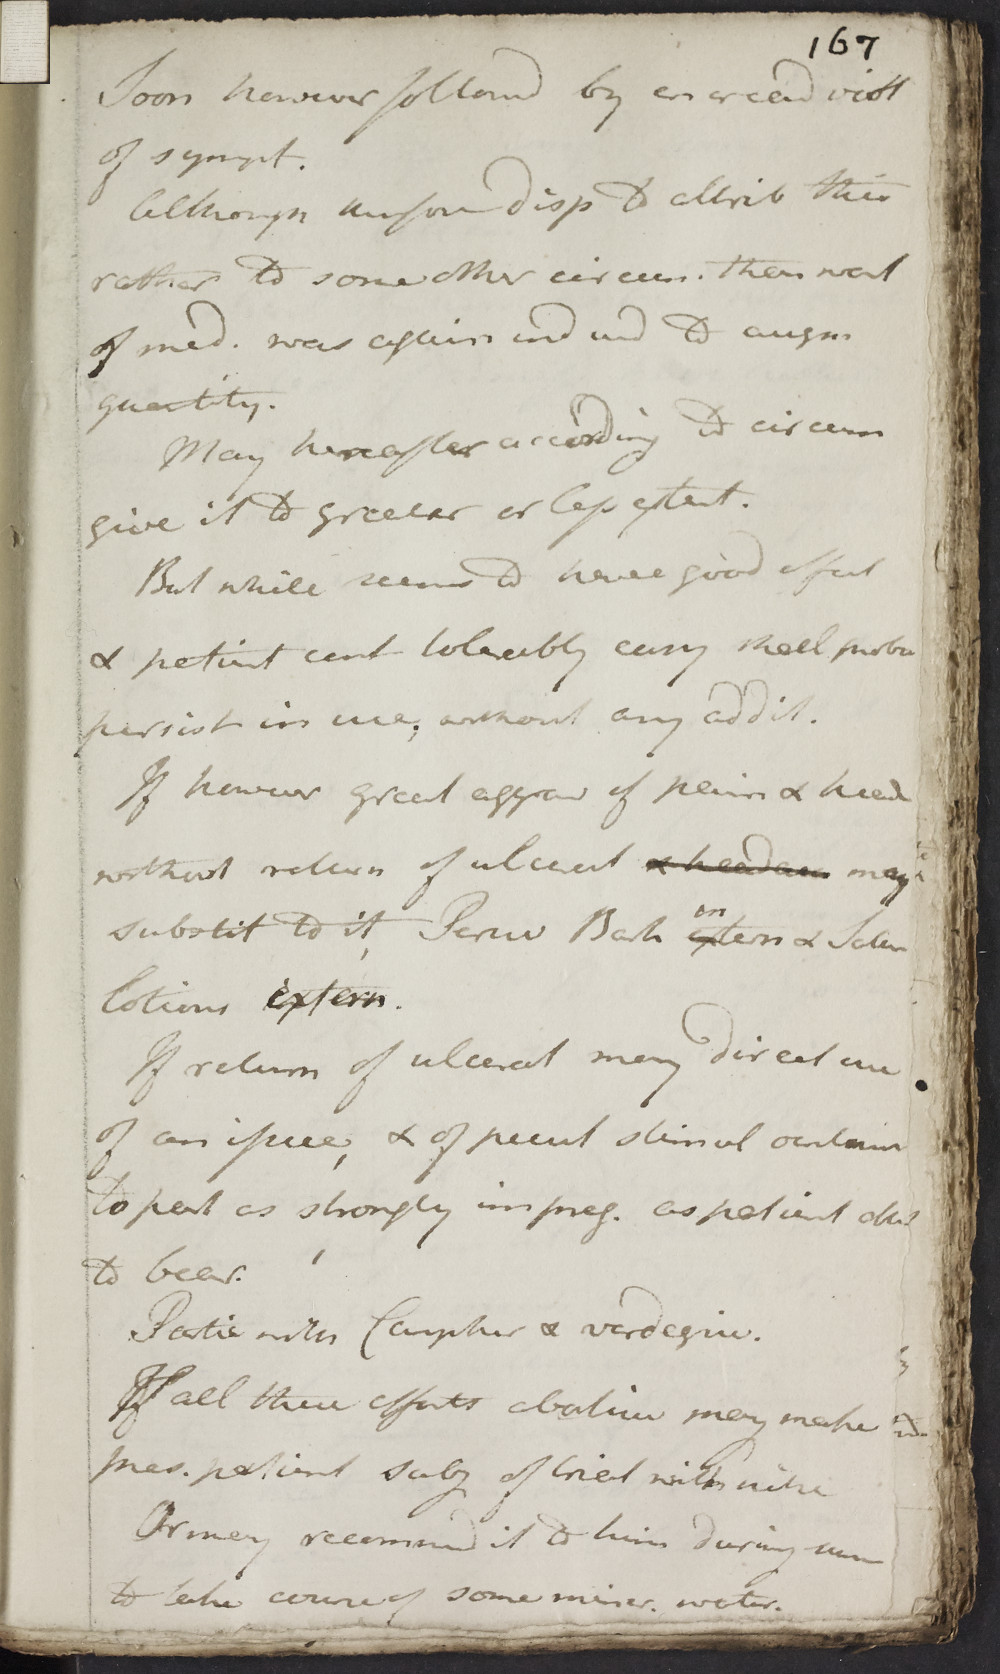 167
Soon however followd by an aread viol
of sympt.
Although myself disp to attrib this
rather to some other circum. than want
of med. was again ind to augm
quantity.
May hereafter according to circum
give it to greater or less extent.
But while seems to have good effect
& patient cont tolerably easy shall proba
persist in use, without any addit.
If however great aggrav of pain & head
without return of ulcerat may
substit to it, Peruv Bark intern & Satur
lotions extern.
If return of ulcerat may direct use
of an issue, & of stimul ointmen
to part as strongly impreg. as patient able
to bear.
Partic with Camphor & verdegrise.
If all these efforts abortive may make
pres. patient subj of trial with nitre
Or may recommend it to him during
to take course of some miner. water.